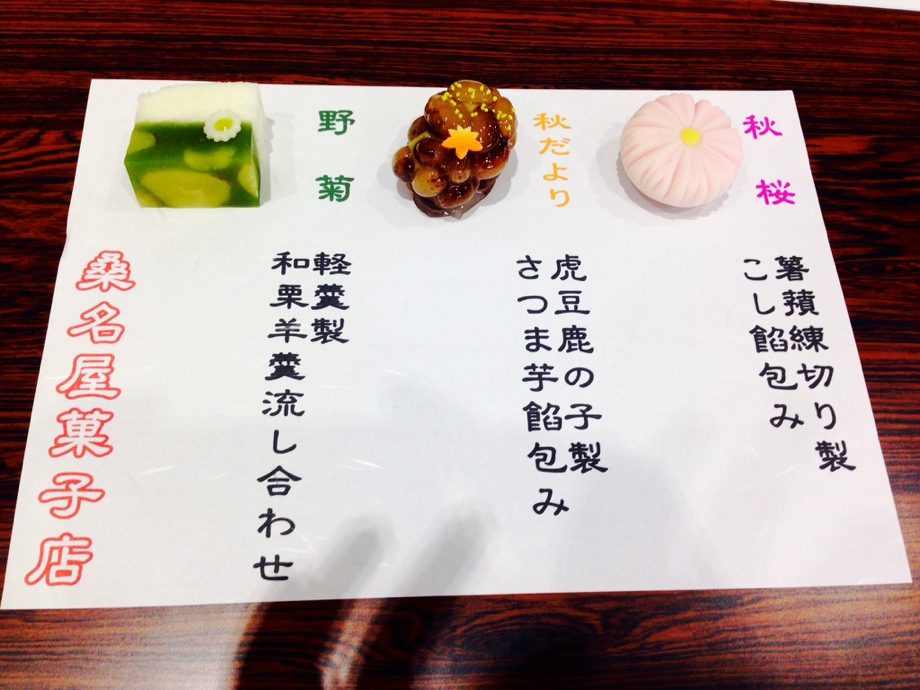 秋桜
薯蕷練切り製
こし餡包み
秋だより
虎豆鹿の子製
さつま芋餡包み
野菊
軽羹製
和栗羊羹流し合わせ
桑名屋菓子店